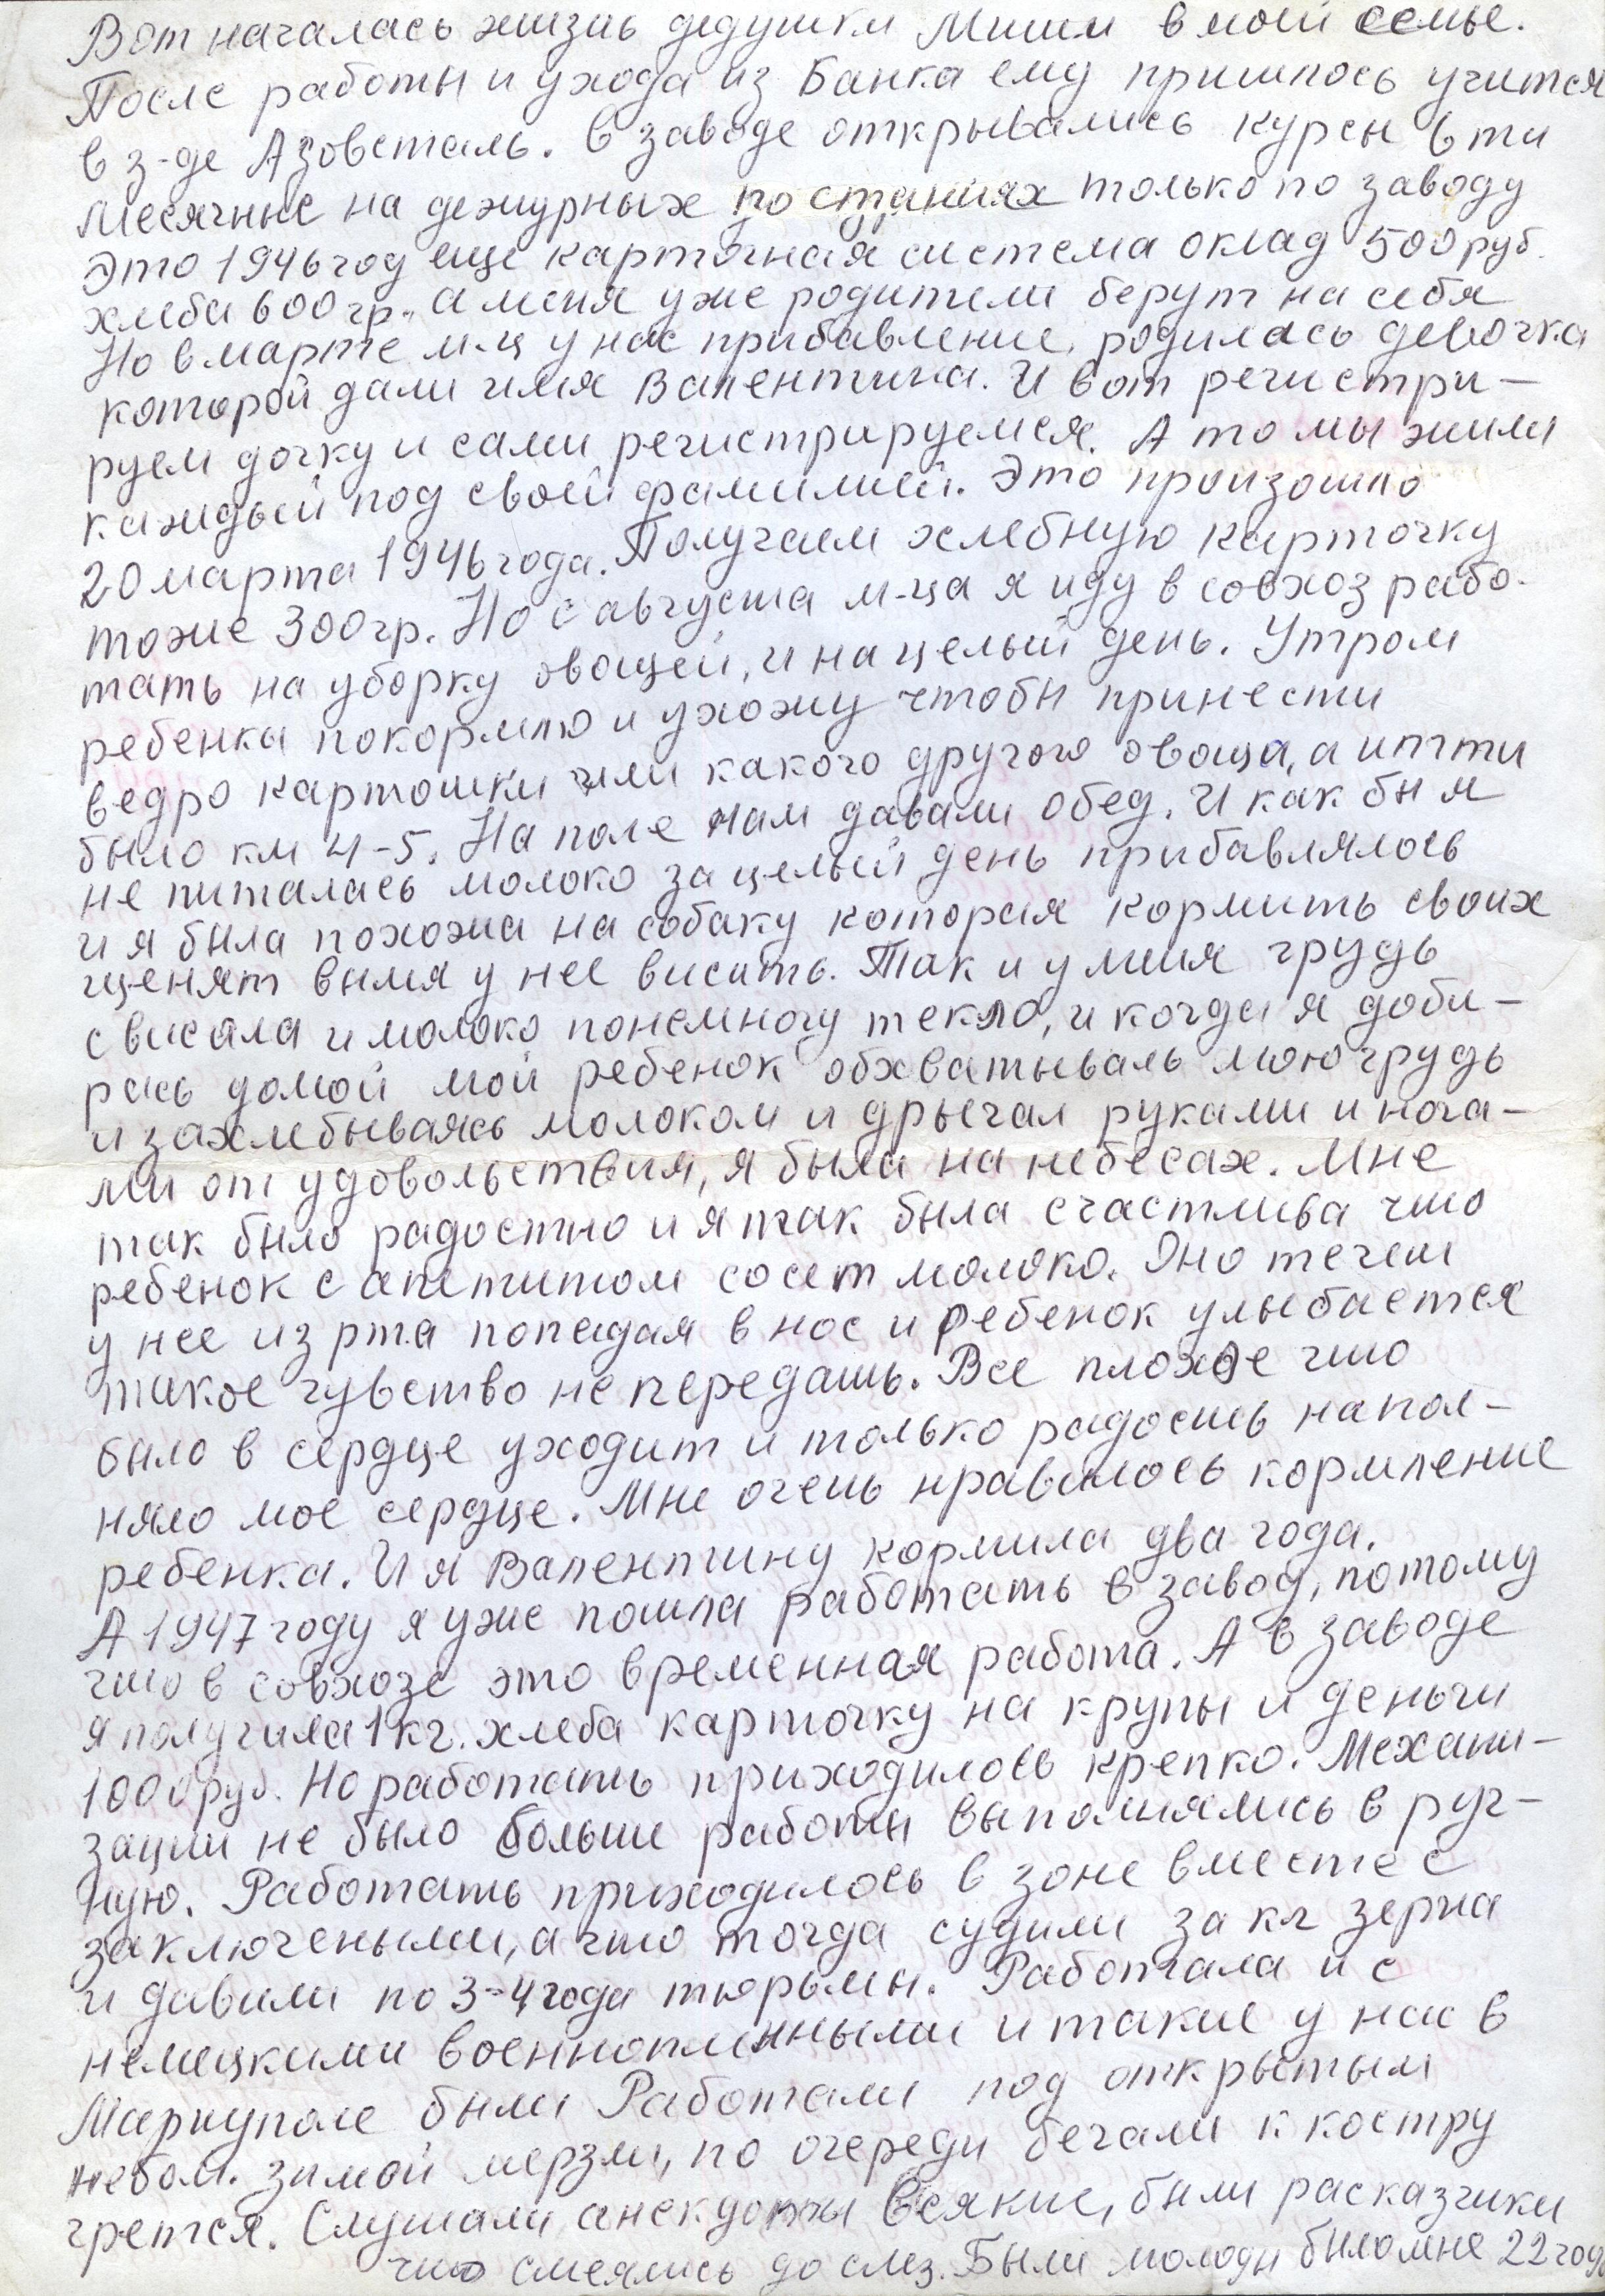 Вот началась жизнь дедушки Миши в моей семье.
После работы и ухода из Банка ему пришлось учится
в з-де Азовсталь. в заводе открывались курсы 6 ти
месячные на дежурных по станиях только по заводу
Это 1946 год еще карточная система оклад 500 руб.
хлеба 600 гр. а меня уже родители берут на себя
Но в марте м-ц у нас прибавление, родилась девочка
которой дали имя Валентина. И вот регистри-
руем дочку и сами регистрируемся. А то мы жили
каждый под своей фамилией. Это произошло
20 марта 1946 года. Получаем хлебную карточку
тоже 300 гр. Но с августа м-ца я иду в совхоз рабо-
тать на уборку овощей, и на целый день. Утром
ребенка покормлю и ухожу чтобы принести
ведро картошки или какого другого овоща, а итти
было км 4-5. На поле нам давали обед. И как бы я
не питалась молоко за целый день прибавлялось
и я была похожа на собаку которая кормить своих
щенят вымя у нее висить. Так и у меня грудь
свисала и молоко понемногу текло, и когда я доби-
рась домой мой ребенок обхватываль мою грудь
и захлебываясь молоком и дрыгал руками и нога-
ми от удовольствия, я была на небесах. Мне
так было радостно и я так была счастлива что
ребенок с апетитом сосет молоко. Оно течет
у нее из рта попадая в нос и ребенок улыбается
такое чувство не передашь. Все плохое что
было в сердце уходит и только радость напол-
няло мое сердце. Мне очень нравилось кормление
ребенка. И я Валентину кормила два года.
А 1947 году я уже пошла работать в завод, потому
что в совхозе это временная работа. А в заводе
я получила 1 кг. хлеба карточку на крупы и деньги
1000 руб. Но работать приходилось крепко. Механи-
зации не было больше работы выполнялись в руч-
ную. Работать приходилось в зоне вместе с
заключеными, а что тогда судили за кг зерна
и давали по 3-4 года тюрьмы. Работала и с
немецкими военнопленными и такие у нас в
Мариуполе были Работали под открытым
небом. зимой мерзли, по очереди бегали к костру
грется. Слушали анекдоты всякие, были расказчики
что смеялись до слез. Были молоды было мне 22 года